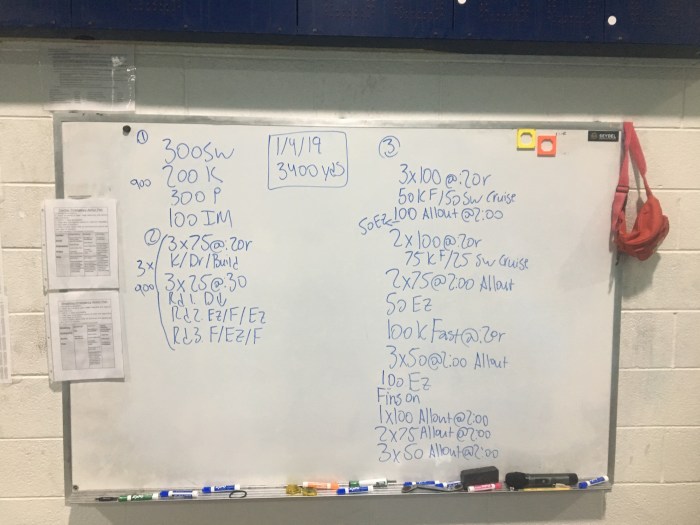 1
300 SW
200 K
900
300 P
100 IM
1/4/19
3400 yds
2
3x
900
3x75@:20r
K/Dr/Build
3x25@:30
Rd 1. Dr
Rd 2. EZ/F/EZ
Rd 3. F/EZ/F
3
3x100@:20r
50KF/50 SW Cruise
100 Allout@2:00
50 EZ
2x100@:20r
75KF/25 SW Cruise
2x75@2:00 Allout
50 EZ
100K Fast@:20r
3x50@2:00 Allout
100 EZ
Fins on
1x100 Allout@2:00
2x75 Allout@2:00
3x50 Allout@2:00